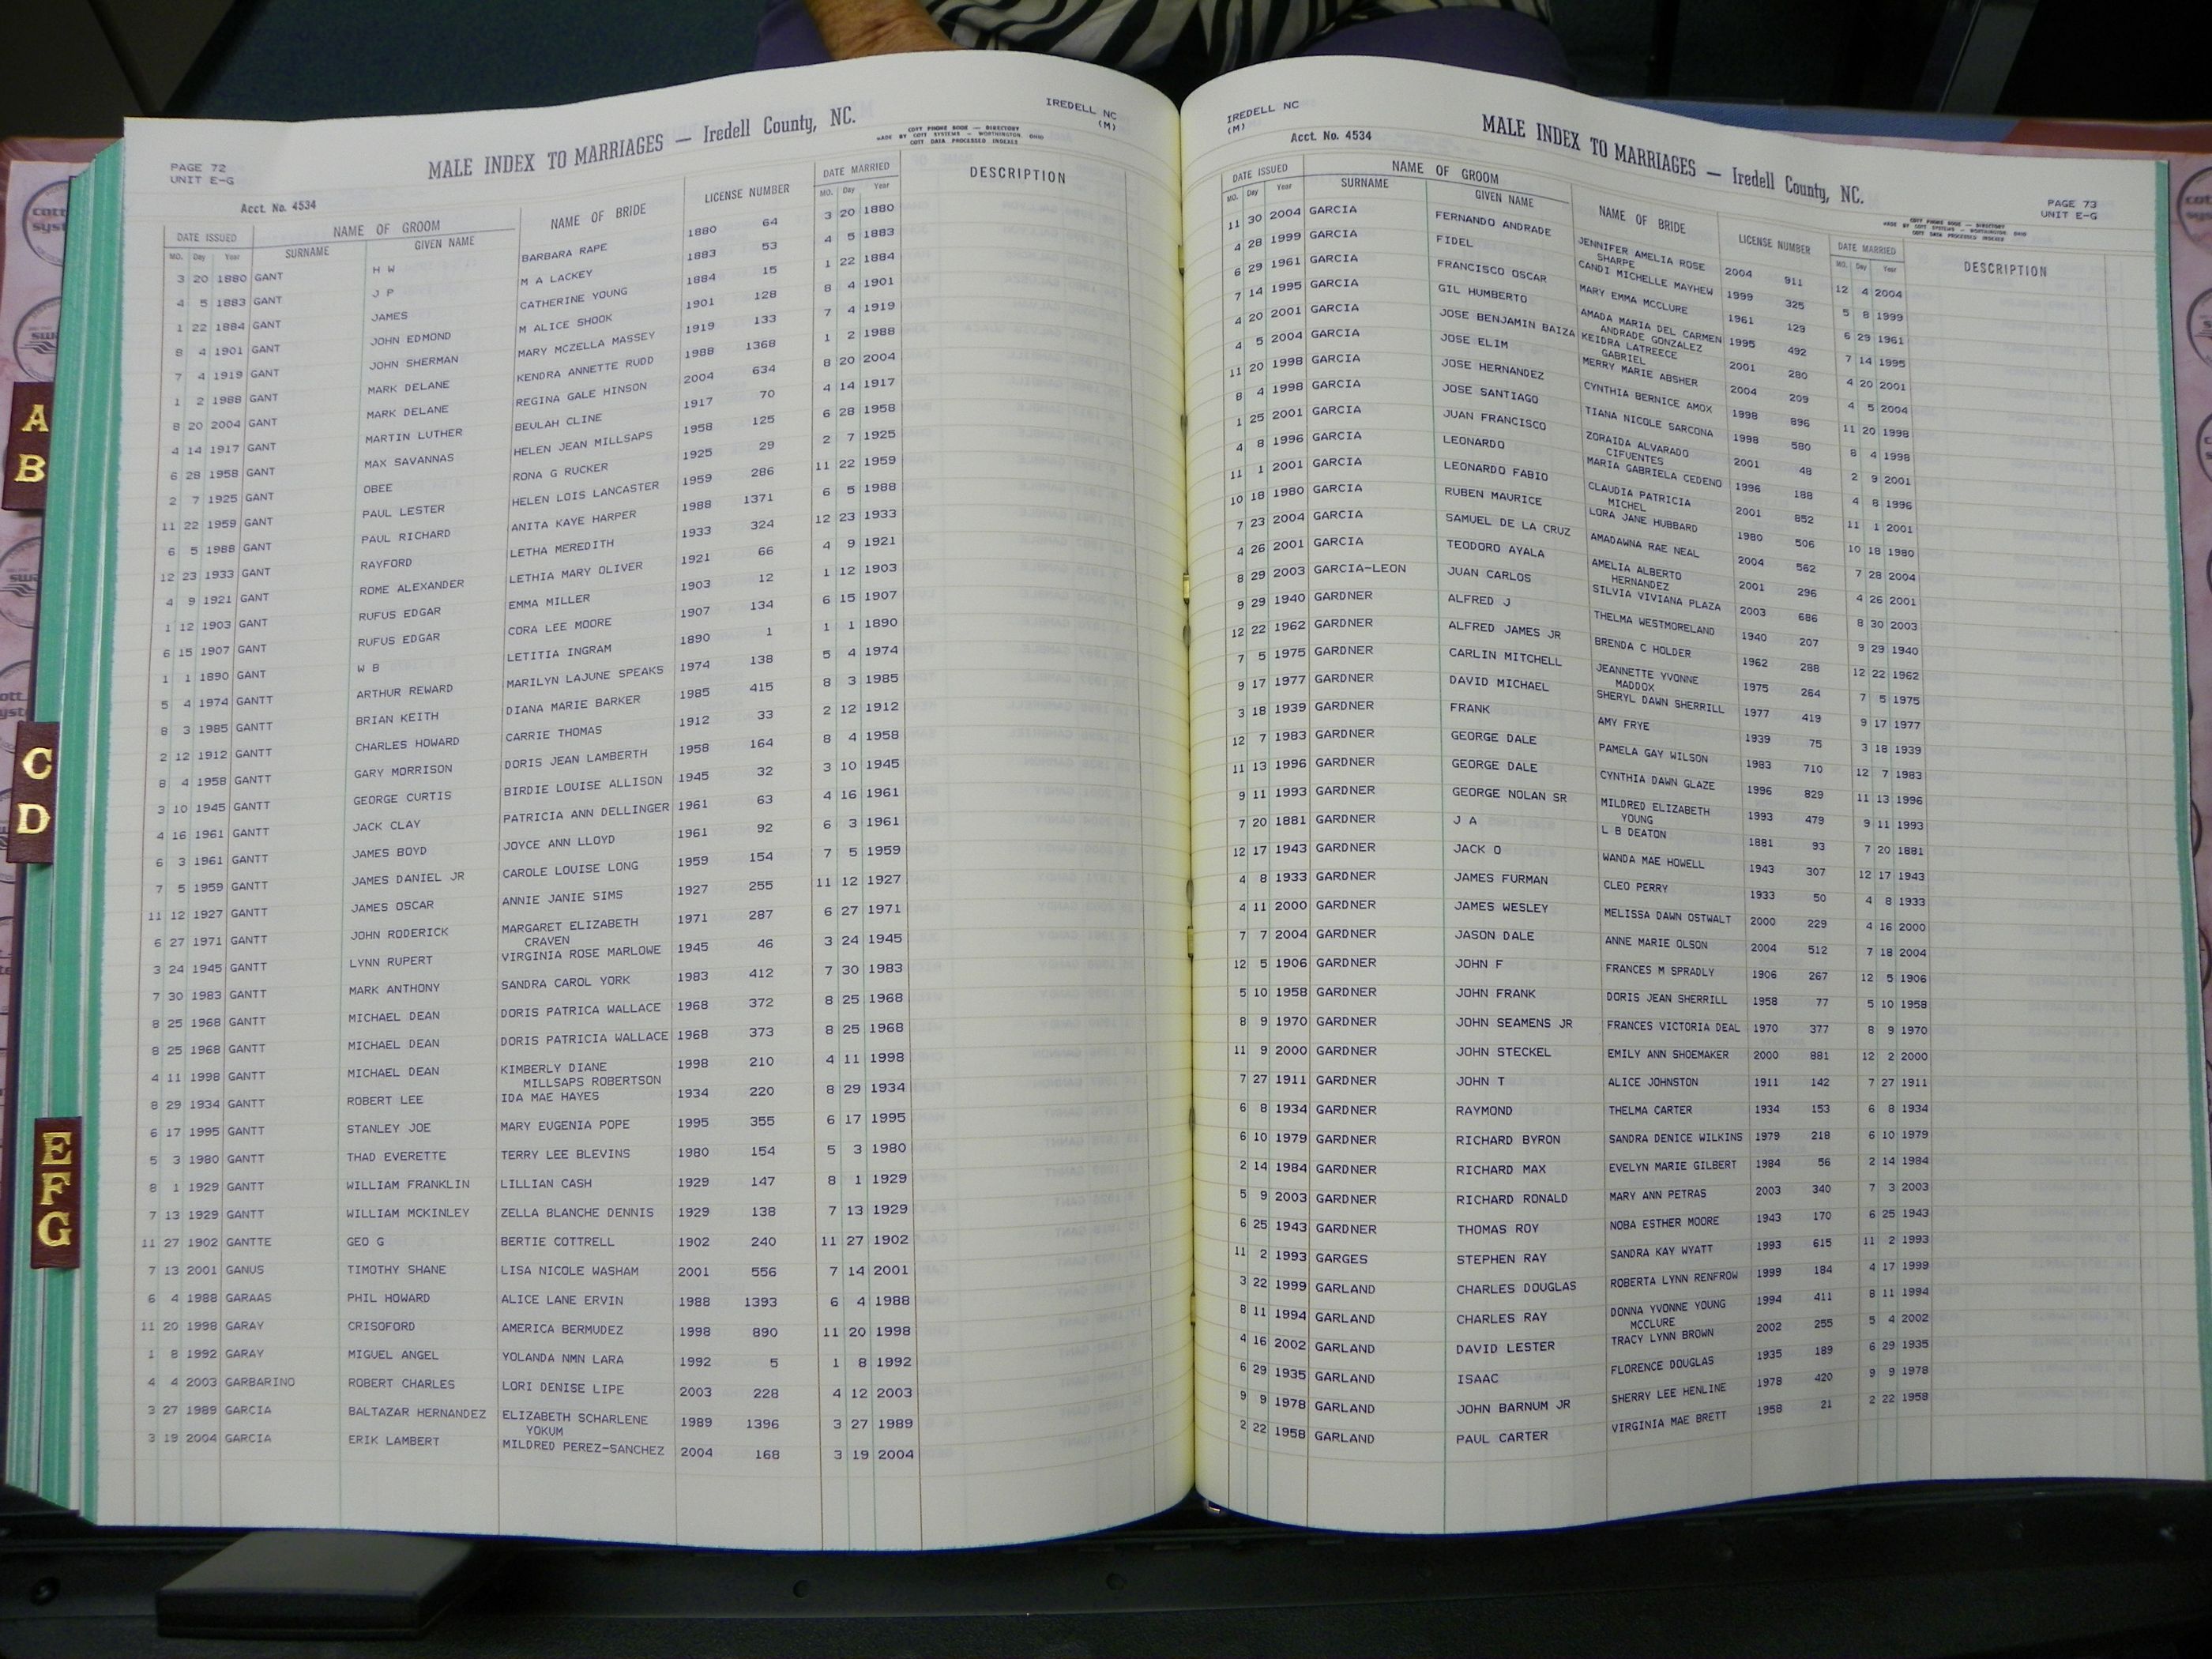 IREDELL NC
(M)
MALE INDEX TO MARRIAGES — Iredell County, NC.
MADE BY COTT SYSTEMS — WORTHINGTON OHIO
COTT DATA PROCESSED INDEXES
PAGE 72
UNIT E-G
Acct. No. 4534
DATE ISSUED NAME OF GROOM NAME OF BRIDE LICENSE NUMBER DATE MARRIED DESCRIPTION
MO. Day Year SURNAME GIVEN NAME MO. Day Year
3 20 1880 GANT H W BARBARA RAPE 1880 64 3 20 1880
4 5 1883 GANT J P M A LACKEY 1883 53 4 5 1883
1 22 1884 GANT JAMES CATHERINE YOUNG 1884 15 1 22 1884
8 4 1901 GANT JOHN EDMOND M ALICE SHOOK 1901 128 8 4 1901
7 4 1919 GANT JOHN SHERMAN MARY MCZELLA MASSEY 1919 133 7 4 1919
1 2 1988 GANT MARK DELANE KENDRA ANNETTE RUDD 1988 1368 1 2 1988
8 20 2004 GANT MARK DELANE REGINA GALE HINSON 2004 634 8 20 2004
4 14 1917 GANT MARTIN LUTHER BEULAH CLINE 1917 70 4 14 1917
6 28 1958 GANT MAX SAVANNAS HELEN JEAN MILLSAPS 1958 125 6 28 1958
2 7 1925 GANT OBEE RONA G RUCKER 1925 29 2 7 1925
11 22 1959 GANT PAUL LESTER HELEN LOIS LANCASTER 1959 286 11 22 1959
6 5 1988 GANT PAUL RICHARD ANITA KAYE HARPER 1988 1371 6 5 1988
12 23 1933 GANT RAYFORD LETHA MEREDITH 1933 324 12 23 1933
4 9 1921 GANT ROME ALEXANDER LETHIA MARY OLIVER 1921 66 4 9 1921
1 12 1903 GANT RUFUS EDGAR EMMA MILLER 1903 12 1 12 1903
6 15 1907 GANT RUFUS EDGAR CORA LEE MOORE 1907 134 6 15 1907
1 1 1890 GANT W B LETITIA INGRAM 1890 1 1 1 1890
5 4 1974 GANTT ARTHUR REWARD MARILYN LAJUNE SPEAKS 1974 138 5 4 1974
8 3 1985 GANTT BRIAN KEITH DIANA MARIE BARKER 1985 415 8 3 1985
2 12 1912 GANTT CHARLES HOWARD CARRIE THOMAS 1912 33 2 12 1912
8 4 1958 GANTT GARY MORRISON DORIS JEAN LAMBERTH 1958 164 8 4 1958
3 10 1945 GANTT GEORGE CURTIS BIRDIE LOUISE ALLISON 1945 32 3 10 1945
4 16 1961 GANTT JACK CLAY PATRICIA ANN DELLINGER 1961 63 4 16 1961
6 3 1961 GANTT JAMES BOYD JOYCE ANN LLOYD 1961 92 6 3 1961
7 5 1959 GANTT JAMES DANIEL JR CAROLE LOUISE LONG 1959 154 7 5 1959
11 12 1927 GANTT JAMES OSCAR ANNIE JANIE SIMS 1927 255 11 12 1927
6 27 1971 GANTT JOHN RODERICK MARGARET ELIZABETH 1971 287 6 27 1971
CRAVEN
3 24 1945 GANTT LYNN RUPERT VIRGINIA ROSE MARLOWE 1945 46 3 24 1945
7 30 1983 GANTT MARK ANTHONY SANDRA CAROL YORK 1983 412 7 30 1983
8 25 1968 GANTT MICHAEL DEAN DORIS PATRICA WALLACE 1968 372 8 25 1968
8 25 1968 GANTT MICHAEL DEAN DORIS PATRICIA WALLACE 1968 373 8 25 1968
4 11 1998 GANTT MICHAEL DEAN KIMBERLY DIANE 1998 210 4 11 1998
MILLSAPS ROBERTSON
8 29 1934 GANTT ROBERT LEE IDA MAE HAYES 1934 220 8 29 1934
6 17 1995 GANTT STANLEY JOE MARY EUGENIA POPE 1995 355 6 17 1995
5 3 1980 GANTT THAD EVERETTE TERRY LEE BLEVINS 1980 154 5 3 1980
8 1 1929 GANTT WILLIAM FRANKLIN LILLIAN CASH 1929 147 8 1 1929
7 13 1929 GANTT WILLIAM MCKINLEY ZELLA BLANCHE DENNIS 1929 138 7 13 1929
11 27 1902 GANTTE GEO G BERTIE COTTRELL 1902 240 11 27 1902
7 13 2001 GANUS TIMOTHY SHANE LISA NICOLE WASHAM 2001 556 7 14 2001
6 4 1988 GARAAS PHIL HOWARD ALICE LANE ERVIN 1988 1393 6 4 1988
11 20 1998 GARAY CRISOFORD AMERICA BERMUDEZ 1998 890 11 20 1998
1 8 1992 GARAY MIGUEL ANGEL YOLANDA NMN LARA 1992 5 1 8 1992
4 4 2003 GARBARINO ROBERT CHARLES LORI DENISE LIPE 2003 228 4 12 2003
3 27 1989 GARCIA BALTAZAR HERNANDEZ ELIZABETH SCHARLENE 1989 1396 3 27 1989
YOKUM
3 19 2004 GARCIA ERIK LAMBERT MILDRED PEREZ-SANCHEZ 2004 168 3 19 2004
IREDELL NC
(M)
Acct. No. 4534
MALE INDEX TO MARRIAGES — Iredell County, NC.
PAGE 73
UNIT E-G
DATE ISSUED NAME OF GROOM NAME OF BRIDE LICENSE NUMBER DATE MARRIED DESCRIPTION
MO. Day Year SURNAME GIVEN NAME MO. Day Year
11 30 2004 GARCIA FERNANDO ANDRADE JENNIFER AMELIA ROSE 2004 911 12 4 2004
SHARPE
4 28 1999 GARCIA FIDEL CANDI MICHELLE MAYHEW 1999 325 5 8 1999
6 29 1961 GARCIA FRANCISCO OSCAR MARY EMMA MCCLURE 1961 129 6 29 1961
7 14 1995 GARCIA GIL HUMBERTO AMADA MARIA DEL CARMEN 1995 492 7 14 1995
ANDRADE GONZALEZ
4 20 2001 GARCIA JOSE BENJAMIN BAIZA KEIDRA LATREECE 2001 280 4 20 2001
GABRIEL
4 5 2004 GARCIA JOSE ELIM MERRY MARIE ABSHER 2004 209 4 5 2004
11 20 1998 GARCIA JOSE HERNANDEZ CYNTHIA BERNICE AMOX 1998 896 11 20 1998
8 4 1998 GARCIA JOSE SANTIAGO TIANA NICOLE SARCONA 1998 580 8 4 1998
1 25 2001 GARCIA JUAN FRANCISCO ZORAIDA ALVARADO 2001 48 2 9 2001
CIFUENTES
4 8 1996 GARCIA LEONARDO MARIA GABRIELA CEDENO 1996 188 4 8 1996
11 1 2001 GARCIA LEONARDO FABIO CLAUDIA PATRICIA 2001 852 11 1 2001
MICHEL
10 18 1980 GARCIA RUBEN MAURICE LORA JANE HUBBARD 1980 506 10 18 1980
7 23 2004 GARCIA SAMUEL DE LA CRUZ AMADAWNA RAE NEAL 2004 562 7 28 2004
4 26 2001 GARCIA TEODORO AYALA AMELIA ALBERTO 2001 296 4 26 2001
HERNANDEZ
8 29 2003 GARCIA-LEON JUAN CARLOS SILVIA VIVIANA PLAZA 2003 686 8 30 2003
9 29 1940 GARDNER ALFRED J THELMA WESTMORELAND 1940 207 9 29 1940
12 22 1962 GARDNER ALFRED JAMES JR BRENDA C HOLDER 1962 288 12 22 1962
7 5 1975 GARDNER CARLIN MITCHELL JEANNETTE YVONNE 1975 264 7 5 1975
MADDOX
9 17 1977 GARDNER DAVID MICHAEL SHERYL DAWN SHERRILL 1977 419 9 17 1977
3 18 1939 GARDNER FRANK AMY FRYE 1939 75 3 18 1939
12 7 1983 GARDNER GEORGE DALE PAMELA GAY WILSON 1983 710 12 7 1983
11 13 1996 GARDNER GEORGE DALE CYNTHIA DAWN GLAZE 1996 829 11 13 1996
9 11 1993 GARDNER GEORGE NOLAN SR MILDRED ELIZABETH 1993 479 9 11 1993
YOUNG
7 20 1881 GARDNER J A L B DEATON 1881 93 7 20 1881
12 17 1943 GARDNER JACK O WANDA MAE HOWELL 1943 307 12 17 1943
4 8 1933 GARDNER JAMES FURMAN CLEO PERRY 1933 50 4 8 1933
4 11 2000 GARDNER JAMES WESLEY MELISSA DAWN OSTWALT 2000 229 4 16 2000
7 7 2004 GARDNER JASON DALE ANNE MARIE OLSON 2004 512 7 18 2004
12 5 1906 GARDNER JOHN F FRANCES M SPRADLY 1906 267 12 5 1906
5 10 1958 GARDNER JOHN FRANK DORIS JEAN SHERRILL 1958 77 5 10 1958
8 9 1970 GARDNER JOHN SEAMENS JR FRANCES VICTORIA DEAL 1970 377 8 9 1970
11 9 2000 GARDNER JOHN STECKEL EMILY ANN SHOEMAKER 2000 881 12 2 2000
7 27 1911 GARDNER JOHN T ALICE JOHNSTON 1911 142 7 27 1911
6 8 1934 GARDNER RAYMOND THELMA CARTER 1934 153 6 8 1934
6 10 1979 GARDNER RICHARD BYRON SANDRA DENICE WILKINS 1979 218 6 10 1979
2 14 1984 GARDNER RICHARD MAX EVELYN MARIE GILBERT 1984 56 2 14 1984
5 9 2003 GARDNER RICHARD RONALD MARY ANN PETRAS 2003 340 7 3 2003
6 25 1943 GARDNER THOMAS ROY NOBA ESTHER MOORE 1943 170 6 25 1943
11 2 1993 GARGES STEPHEN RAY SANDRA KAY WYATT 1993 615 11 2 1993
3 22 1999 GARLAND CHARLES DOUGLAS ROBERTA LYNN RENFROW 1999 184 4 17 1999
8 11 1994 GARLAND CHARLES RAY DONNA YVONNE YOUNG 1994 411 8 11 1994
MCCLURE
4 16 2002 GARLAND DAVID LESTER TRACY LYNN BROWN 2002 255 5 4 2002
6 29 1935 GARLAND ISAAC FLORENCE DOUGLAS 1935 189 6 29 1935
9 9 1978 GARLAND JOHN BARNUM JR SHERRY LEE HENLINE 1978 420 9 9 1978
2 22 1958 GARLAND PAUL CARTER VIRGINIA MAE BRETT 1958 21 2 22 1958
A
B
C
D
E
F
G